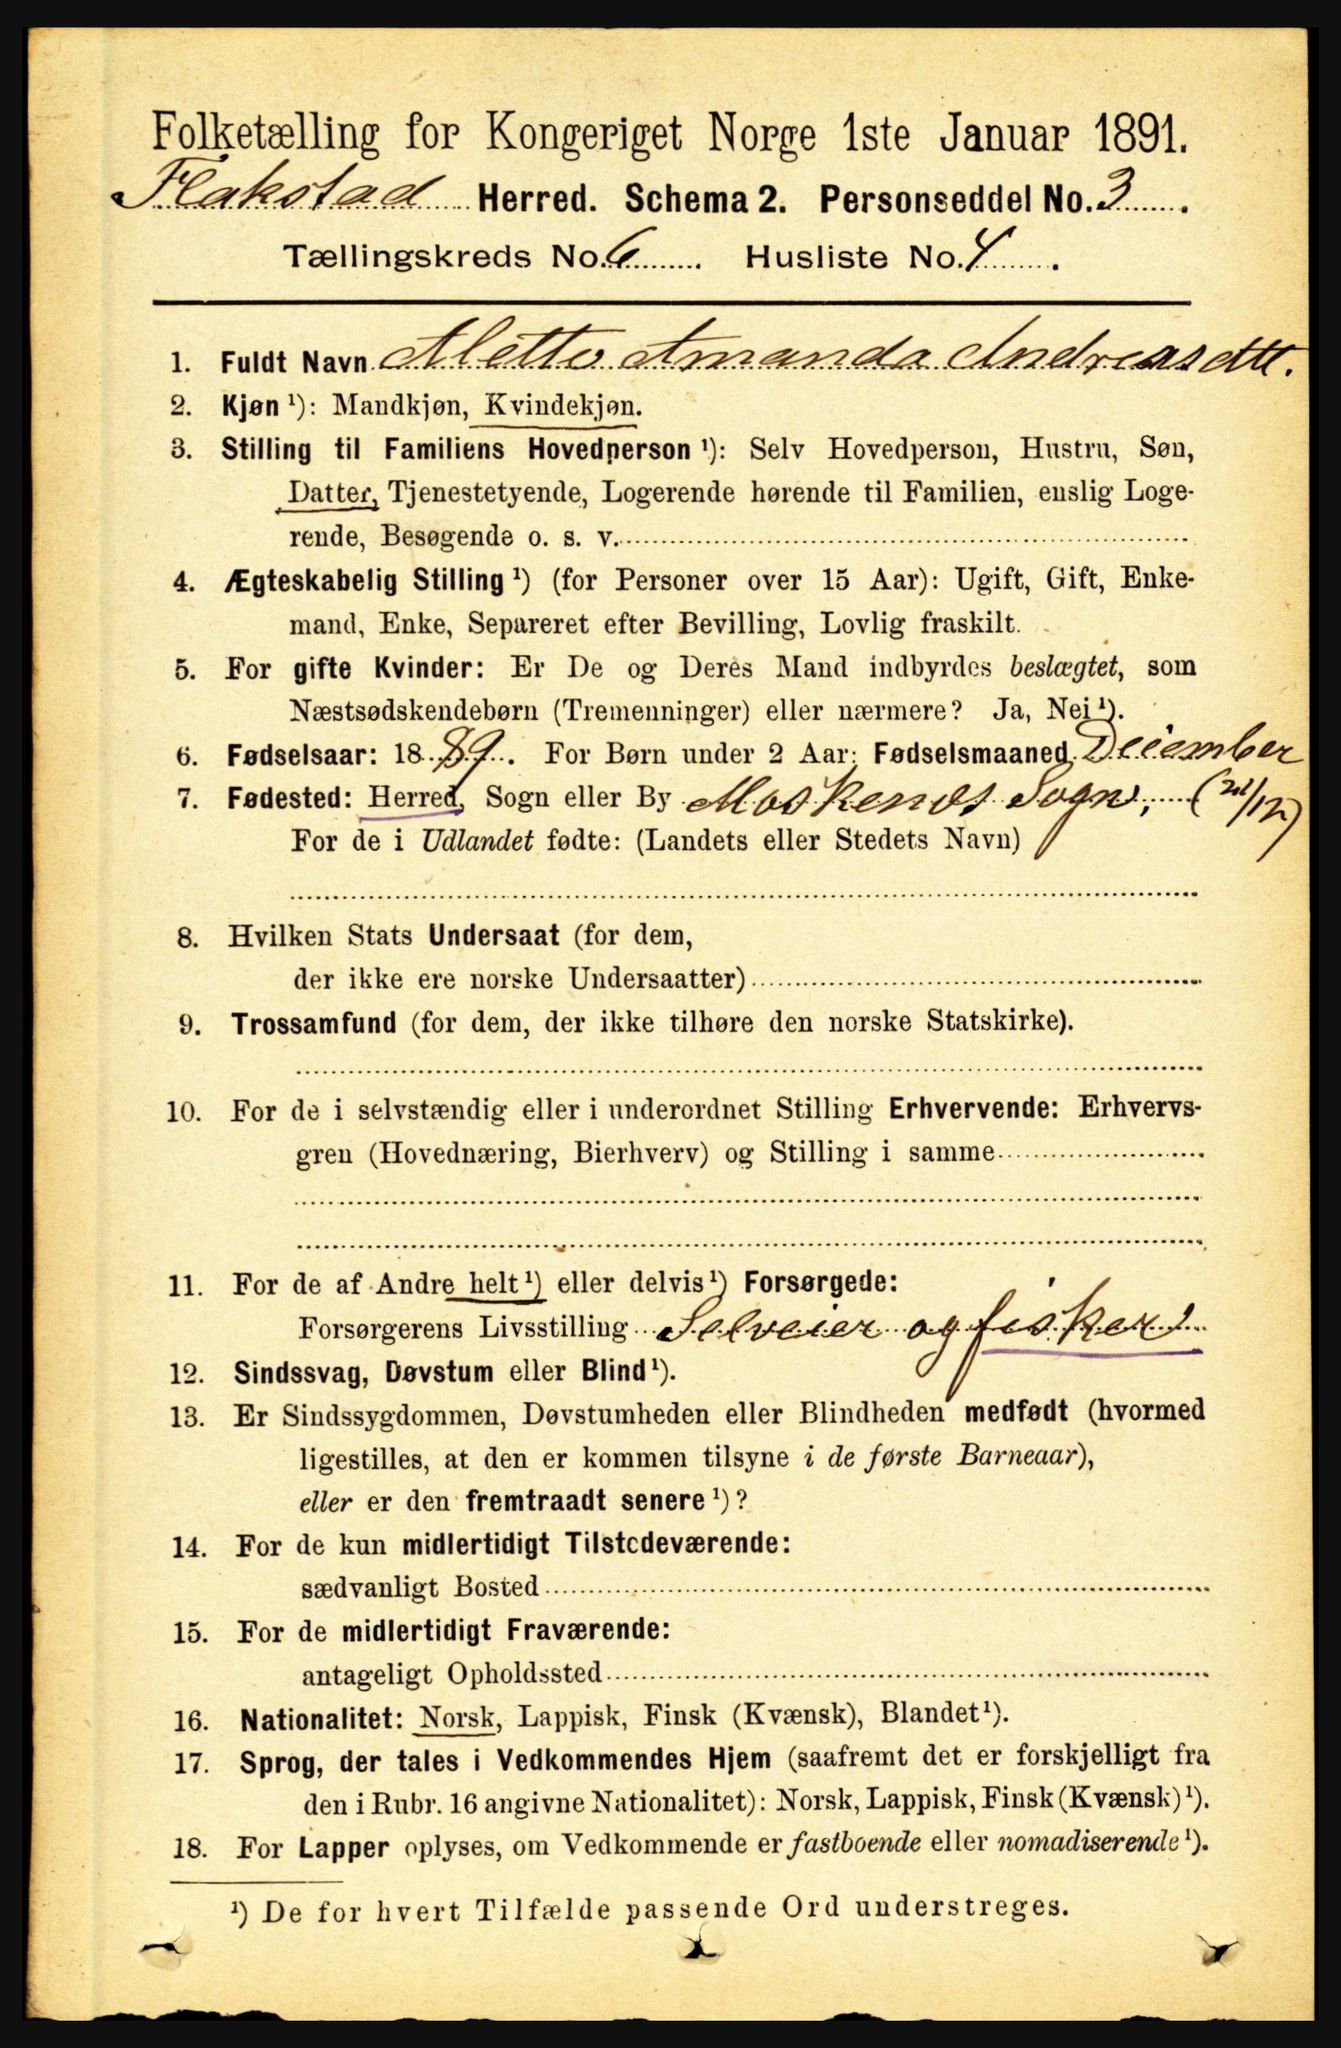 Folketælling for Kongeriget Norge 1ste Januar 1891.
Flakstad Herred. Schema 2. Personseddel No. 3.
Tællingskreds No. 6. Husliste No. 4.
1. Fuldt Navn Mette Amanda Andreasdtt.
2. Kjøn ¹): Mandkjøn, Kvindekjøn.
3. Stilling til Familiens Hovedperson ¹): Selv Hovedperson, Hustru, Søn,
Datter, Tjenestetyende, Logerende hørende til Familien, enslig Loge-
rende, Besøgende o. s. v.
4. Ægteskabelig Stilling ¹) (for Personer over 15 Aar): Ugift, Gift, Enke-
mand, Enke, Separeret efter Bevilling, Lovlig fraskilt.
5. For gifte Kvinder: Er De og Deres Mand indbyrdes beslægtet, som
Næstsødskendebørn (Tremenninger) eller nærmere? Ja, Nei ¹).
6. Fødselsaar: 1889. For Børn under 2 Aar: Fødselsmaaned December
7. Fødested: Herred, Sogn eller By Moskenæs Sogn, (21/12)
For de i Udlandet fødte: (Landets eller Stedets Navn)
8. Hvilken Stats Undersaat (for dem,
der ikke ere norske Undersaatter)
9. Trossamfund (for dem, der ikke tilhøre den norske Statskirke).
10. For de i selvstændig eller i underordnet Stilling Erhvervende: Erhvervs-
gren (Hovednæring, Bierhverv) og Stilling i samme
11. For de af Andre helt ¹) eller delvis ¹) Forsørgede:
Forsørgerens Livsstilling Selveier og fisker
12. Sindssvag, Døvstum eller Blind ¹).
13. Er Sindssygdommen, Døvstumheden eller Blindheden medfødt (hvormed
ligestilles, at den er kommen tilsyne i de første Barneaar),
eller er den fremtraadt senere ¹)?
14. For de kun midlertidigt Tilstedeværende:
sædvanligt Bosted
15. For de midlertidigt Fraværende:
antageligt Opholdssted
16. Nationalitet: Norsk, Lappisk, Finsk (Kvænsk), Blandet ¹).
17. Sprog, der tales i Vedkommendes Hjem (saafremt det er forskjelligt fra
den i Rubr. 16 angivne Nationalitet): Norsk, Lappisk, Finsk (Kvænsk) ¹).
18. For Lapper oplyses, om Vedkommende er fastboende eller nomadiserende ¹).
¹) De for hvert Tilfælde passende Ord understreges.